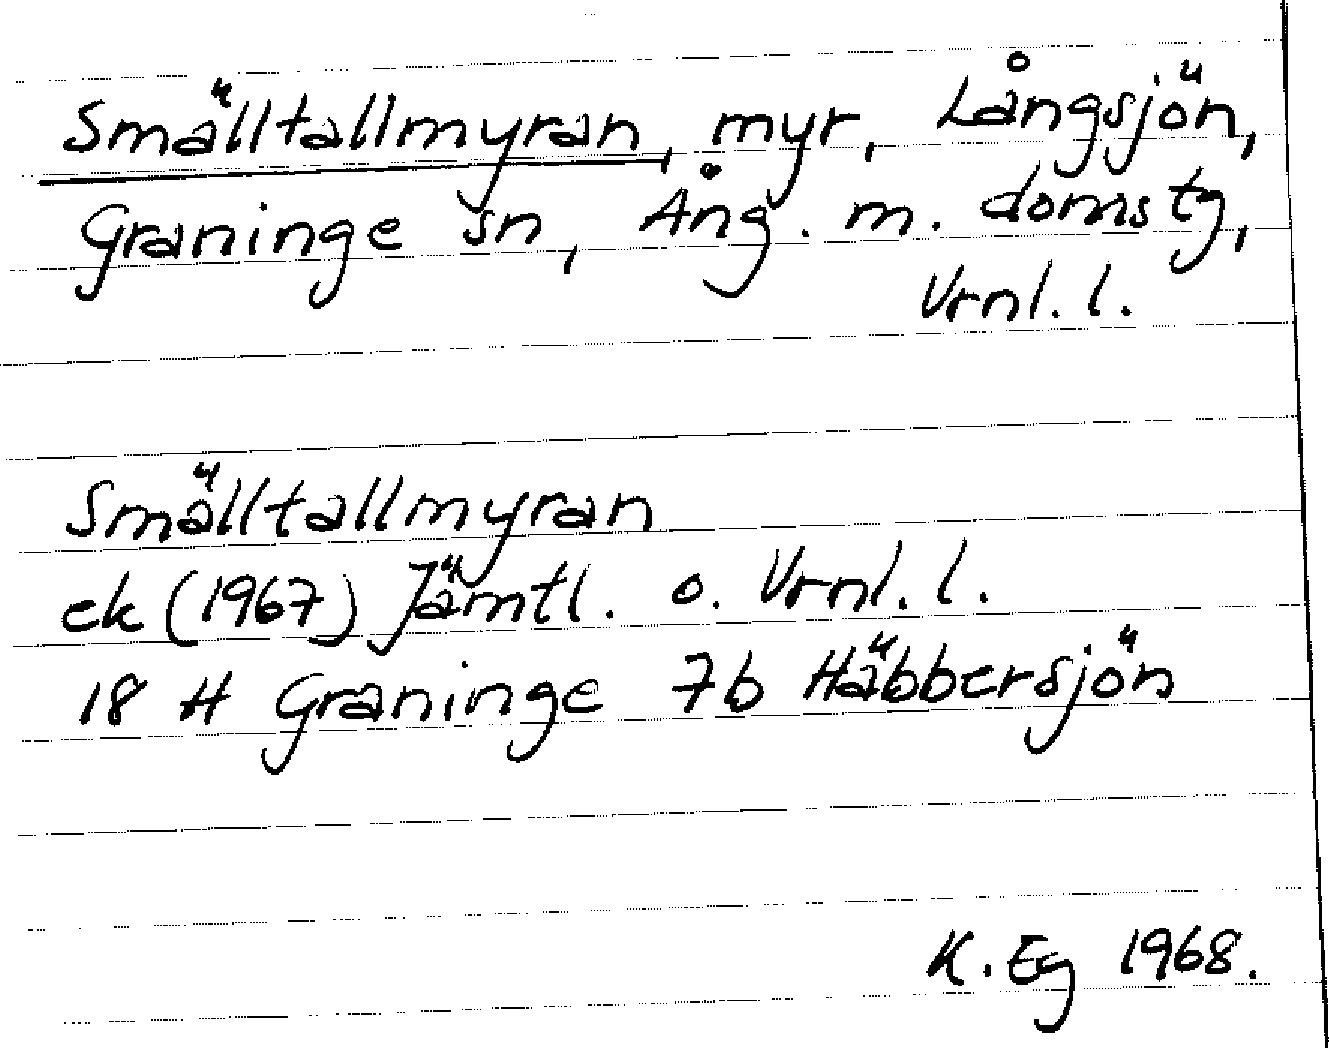 Smälltallmyran, myr, Långsjön,
Graninge sn, Ång. m. domstg,
Vrnl. l.
Smälltallmyran
ek (1967) Jämtl. o. Vrnl. l.
18 H Graninge 7b Häbbersjön
K. Eg 1968.